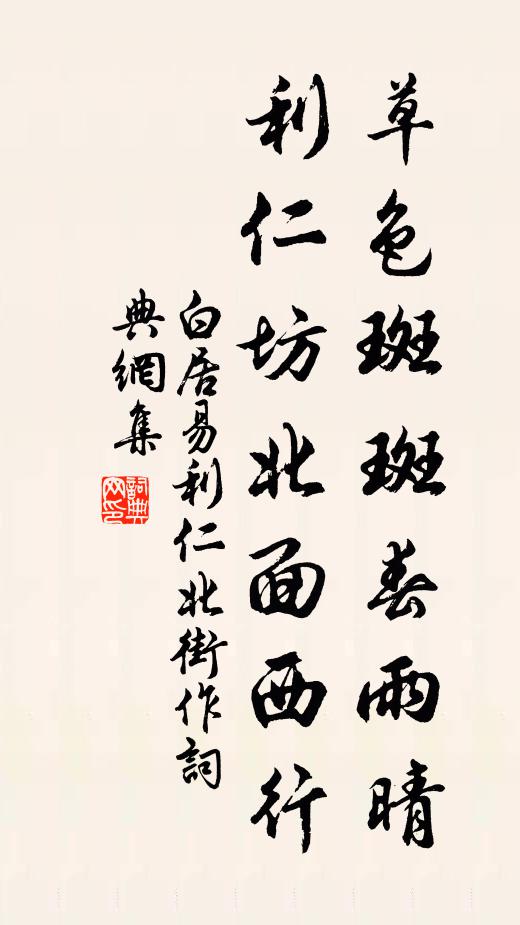 草色斑斑春雨晴
利仁坊北面西行
白居易利仁北街作詞
典網集
詞典
网印